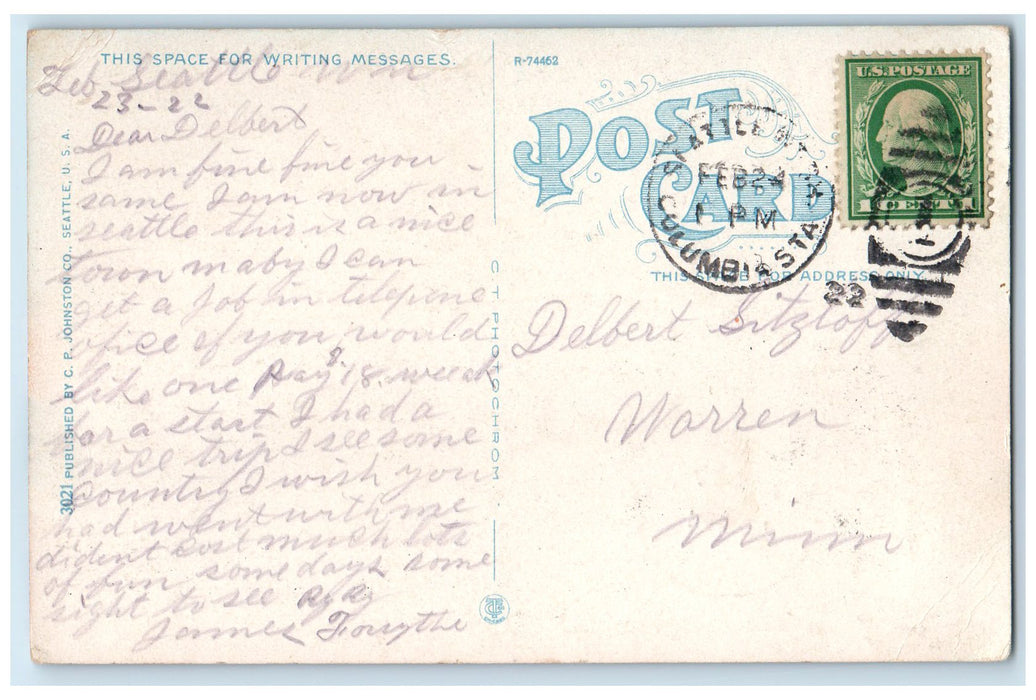 THIS SPACE FOR WRITING MESSAGES.
Feb Seattle Wn
23-22
Dear Delbert
I am fine fine you
same I am now in
seattle this is a nice
town maby I can
get a Job in telepone
office if you would
like one Pay 18. week
for a start I had a
nice trip I see some
country I wish you
had went with me
dident cost much lots
of fun some days some
sight to see
James Forsythe
3021 PUBLISHED BY C. P. JOHNSTON CO., SEATTLE, U. S. A.
C T PHOTOCHROM
R-74462
POST CARD
SEATTLE WASH.
FEB 24
1 PM
COLUMBIA STA.
22
U.S. POSTAGE
1 CENT 1
THIS SPACE FOR ADDRESS ONLY
Delbert Sitzloff
Warren
Minn